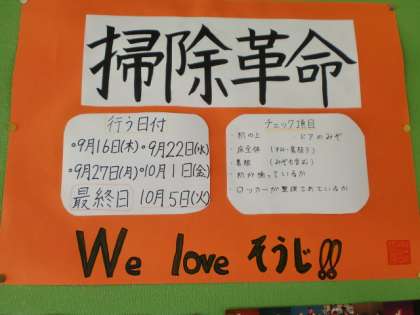 掃除革命
行う日付
・9月16日(木)・9月22日(水)
・9月27日(月)・10月1日(金)
最終日 10月5日(火)
チェック項目
・机の上 ・ドアのみぞ
・床全体
・黒板 (みぞも含む)
・机が揃っているか
・ロッカーが整頓されているか
We love そうじ!!